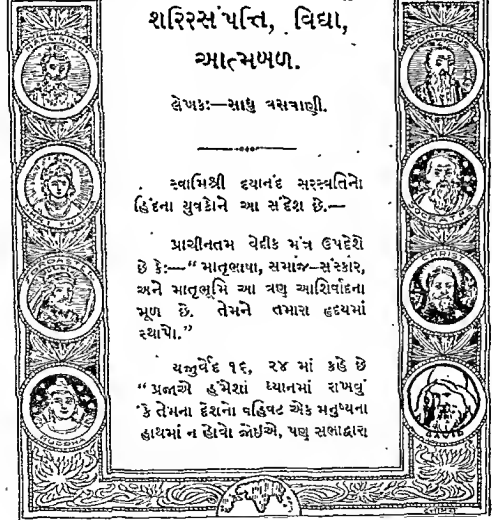 શરિરસંપત્તિ, વિદ્યા,
આત્મબળ.
લેખકઃ—સાધુ વસવાણી.
સ્વામિશ્રી દયાનંદ સરસ્વતિનો
હિંદના યુવકોને આ સંદેશ છે.—
પ્રાચીનતમ વેદીક મંત્ર ઉપદેશે
છે કેઃ—“ માતૃભાષા, સમાજ-સંસ્કાર,
અને માતૃભૂમિ આ ત્રણ આશિર્વાદના
મૂળ છે. તેમને તમારા હૃદયમાં
સ્થાપો.”
યજુર્વેદ ૧૬, ૨૪ માં કહે છે
“ પ્રજાએ હંમેશાં ધ્યાનમાં રાખવું
કે તેમના દેશનો વહિવટ એક મનુષ્યના
હાથમાં ન હોવો જોઇએ, પણ સભાદ્વારા
CONFUCIUS
SOCRATES
CHRIST
BUDDHA